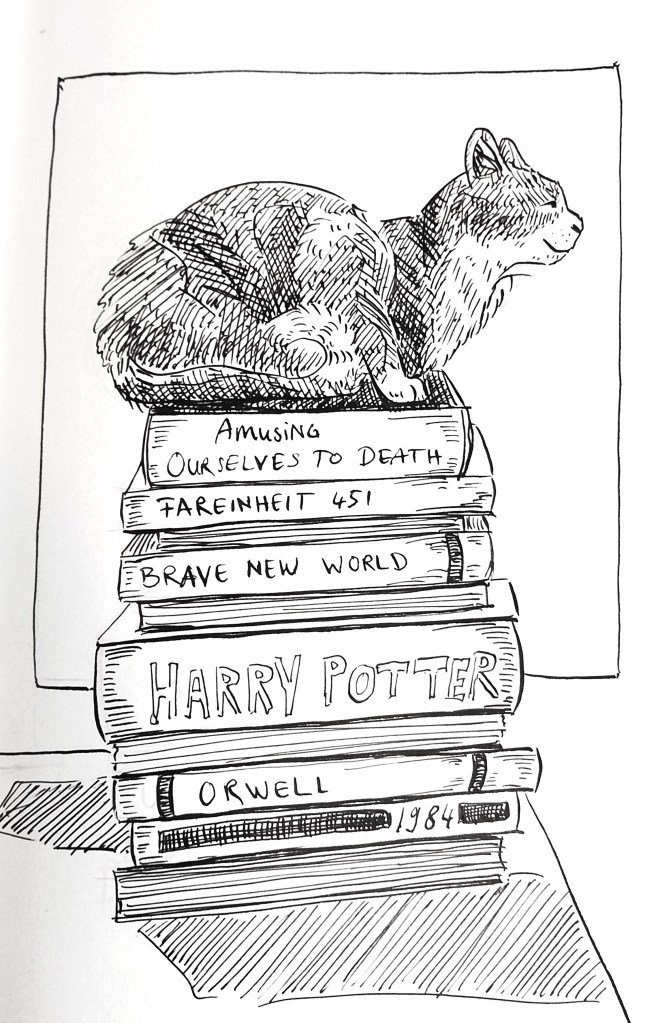 AMUSING
OURSELVES TO DEATH
FAREINHEIT 451
BRAVE NEW WORLD
HARRY POTTER
ORWELL
1984